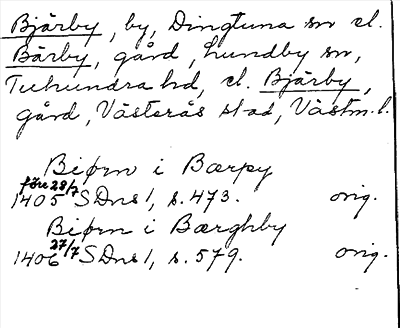 Bjärby, by, Dingtuna sn el.
Bärby, gård, Lundby sn,
Tuhundra hd, el. Bjärby,
gård, Västerås stad, Västm. l.
Biørn i Bærpy
före 28/7
1405 SDns 1, s. 473. orig.
Biørn i Bærghby
1406 27/7 SDns 1, s. 579. orig.